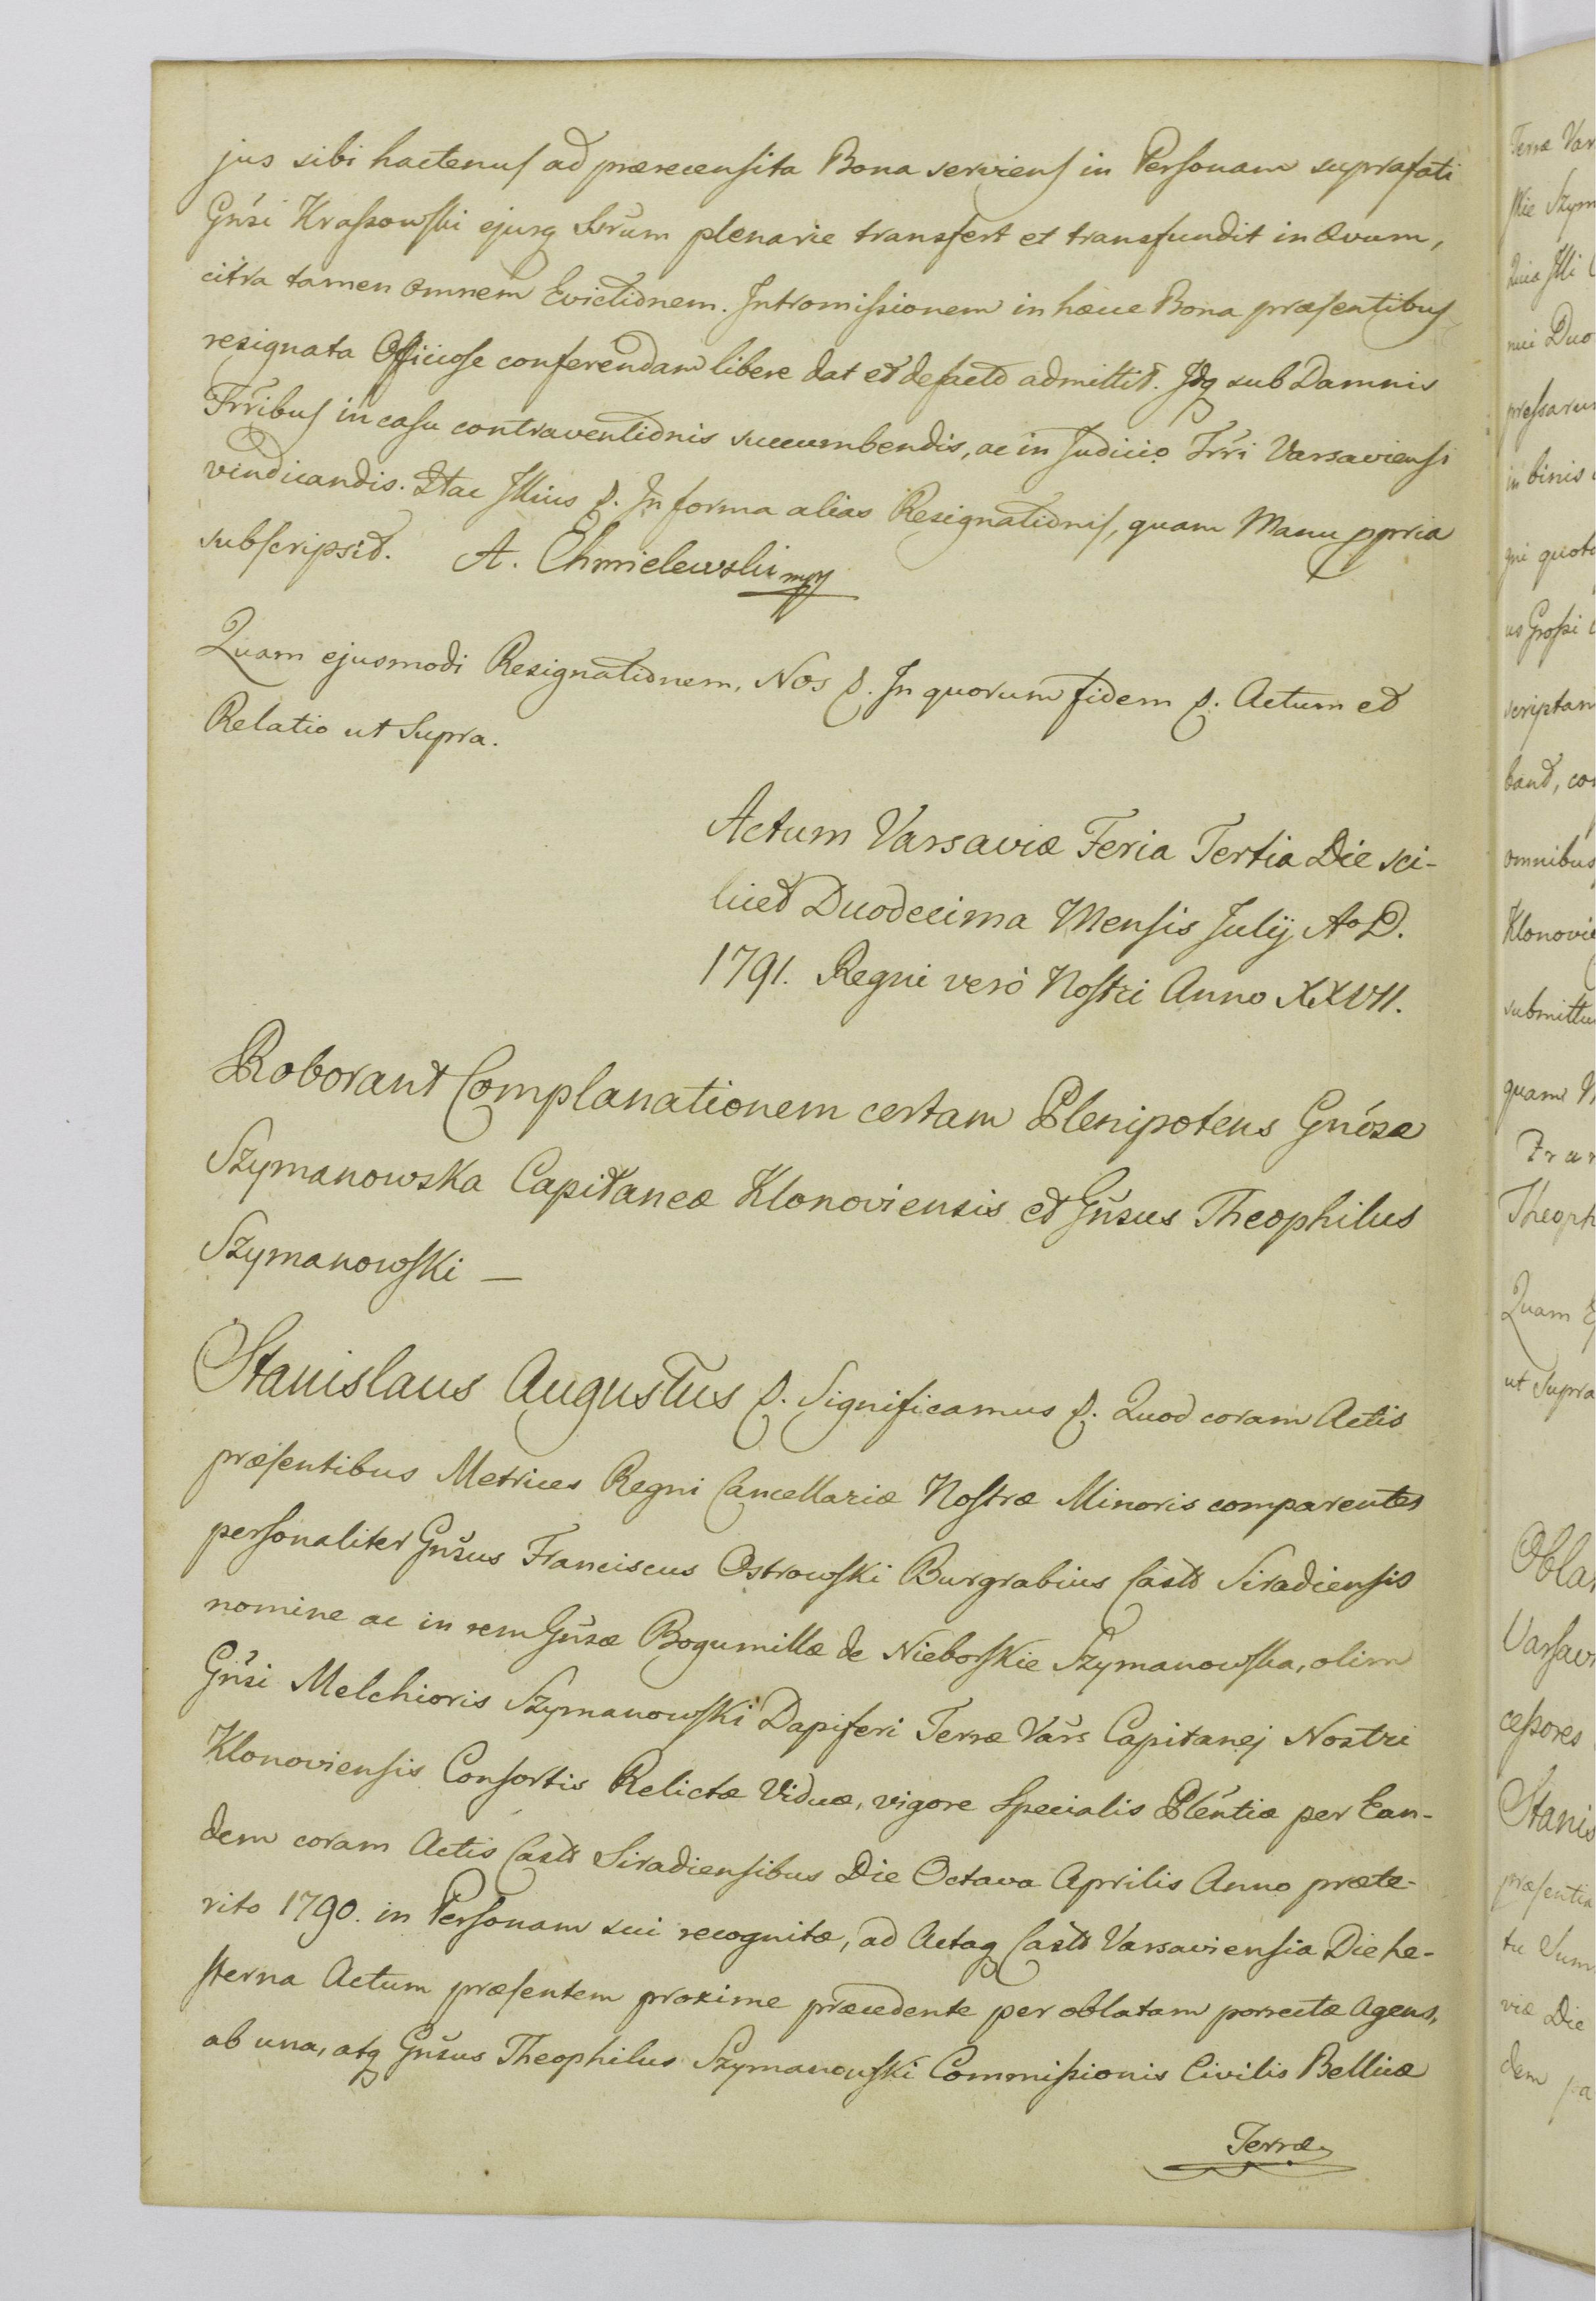 jus sibi hactenus ad præcensita Bona serviens in Personam suprafati
Gnsi Krassowski ejusq Ssrum plenarie transfert et transfundit in ævum,
citra tamen omnem Evictionem. Intromissionem in hæcce Bona præsentibus
resignata Officiose conferendam libere dat et defacto admittit. Idq sub Damnis
Trribus in casu contraventionis succumbendis, ac in Judicio Trri Varsaviensi
vindicandis. Stae Illius p. In forma alias Resignationis, quam Manu ppria
subscripsit. A. Chmielewski mpp
Quam ejusmodi Resignationem, Nos p. In quorum fidem p. Actum et
Relatio ut Supra.
Actum Varsaviæ Feria Tertia Die sci-
licet Duodecima Mensis Julij Ao D.
1791. Regni verò Nostri Anno XXVII.
Roborant Complanationem certam Plenipotens Gnosæ
Szymanowska Capitaneæ Klonoviensis et Gnsus Theophilus
Szymanowski —
Stanislaus Augustus p. Significamus p. Quod coram Actis
præsentibus Metrices Regni Cancellariæ Nostræ Minoris comparentes
personaliter Gnsus Franciscus Ostrowski Burgrabius Castr Siradiensis
nomine ac in rem Gnsæ Bogumillæ de Nieborskie Szymanowska, olim
Gnsi Melchioris Szymanowski Dapiferi Terræ Vars Capitanej Nostri
Klonoviensis Consortis Relictæ Viduæ, vigore specialis Plentiæ per Ean-
dem coram Actis Castr Siradiensibus Die Octava Aprilis Anno præte-
rito 1790. in Personam sui recognitæ, ad Actaq Castr Varsaviensia Die he-
sterna Actum præsentem proxime præcedente per oblatam porrectæ Agens,
ab una, atq Gnsus Theophilus Szymanowski Commissionis Civilis Bellicæ
Terræ